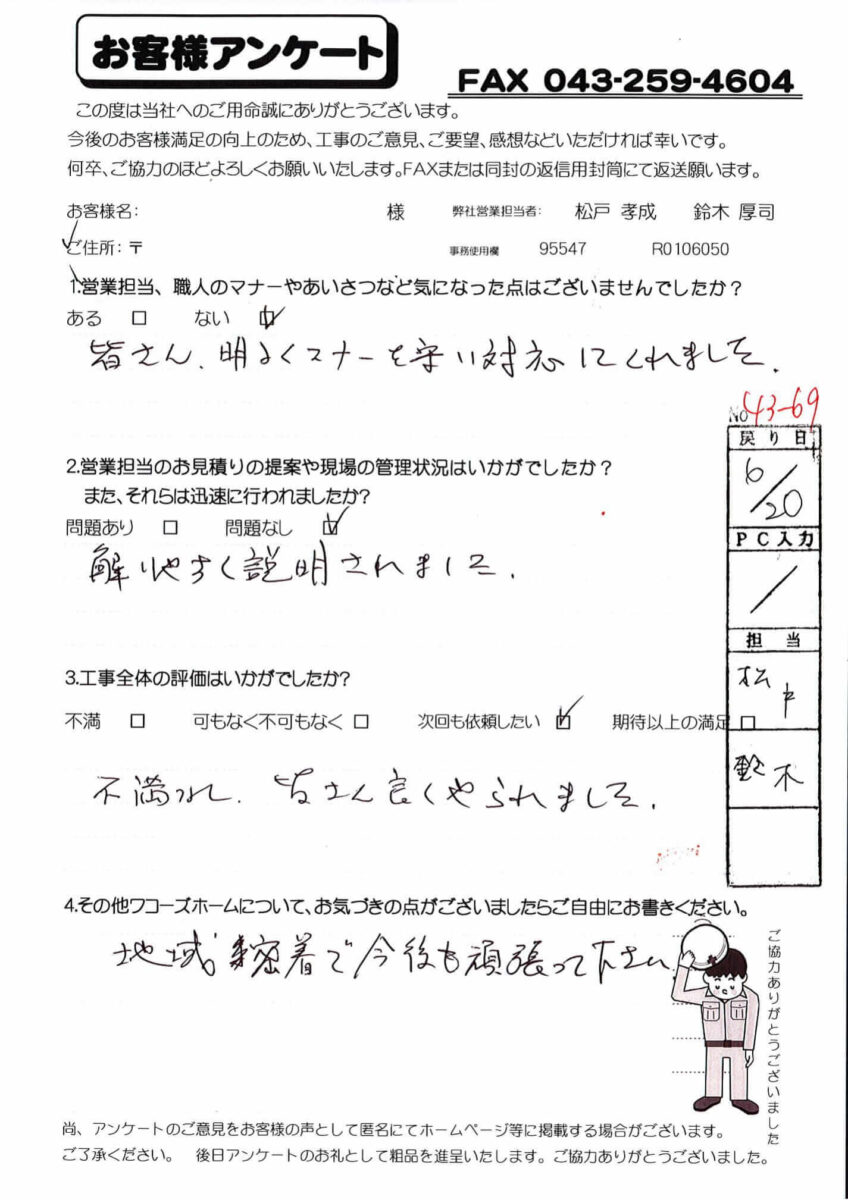 お客様アンケート
FAX 043-259-4604
この度は当社へのご用命誠にありがとうございます。
今後のお客様満足の向上のため、工事のご意見、ご要望、感想などいただければ幸いです。
何卒、ご協力のほどよろしくお願いいたします。FAXまたは同封の返信用封筒にて返送願います。
お客様名: 様 弊社営業担当者: 松戸 孝成 鈴木 厚司
ご住所: 〒 事務使用欄 95547 R0106050
1.営業担当、職人のマナーやあいさつなど気になった点はございませんでしたか?
ある □ ない □
皆さん、明るくマナーを守い対応にくれました.
No 43-69
戻り日
6/20
PC入力
担当
松戸
鈴木
2.営業担当のお見積りの提案や現場の管理状況はいかがでしたか?
また、それらは迅速に行われましたか?
問題あり □ 問題なし □
解りやすく説明されました.
3.工事全体の評価はいかがでしたか?
不満 □ 可もなく不可もなく □ 次回も依頼したい □ 期待以上の満足 □
不満なし. 皆さん良くやられました.
4.その他ワコーズホームについて、お気づきの点がございましたらご自由にお書きください。
地域密着で今後も頑張って下さい
ご協力ありがとうございました
尚、アンケートのご意見をお客様の声として匿名にてホームページ等に掲載する場合がございます。
ご了承ください。 後日アンケートのお礼として粗品を進呈いたします。ご協力ありがとうございました。